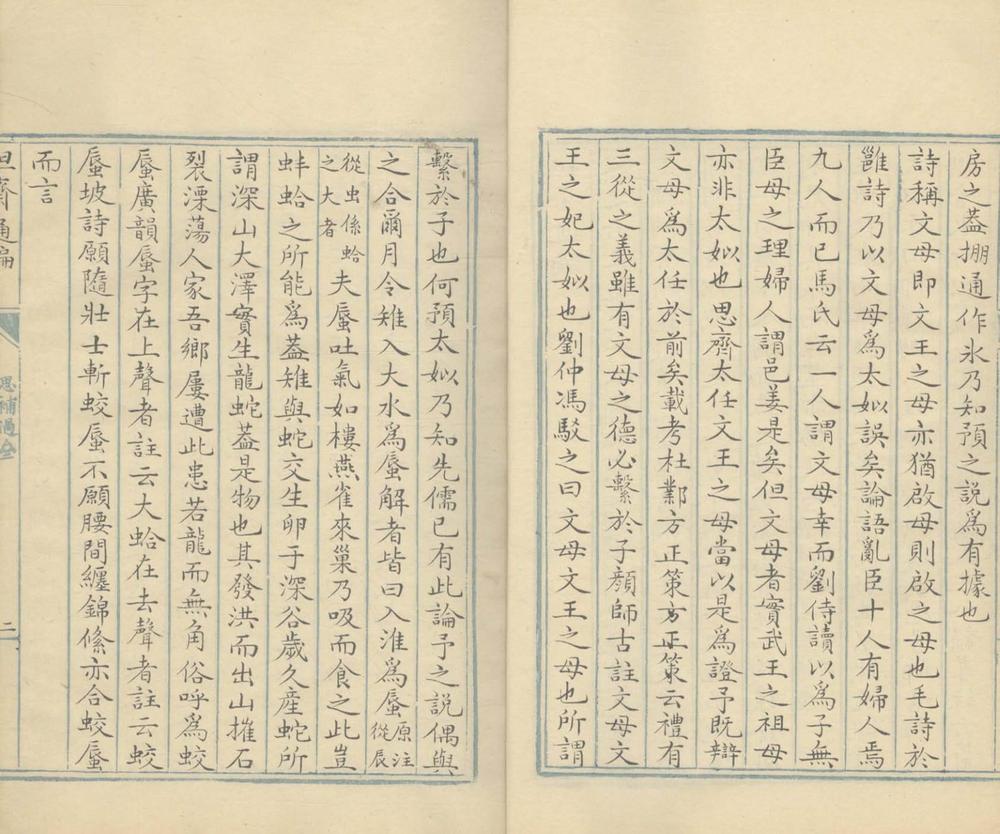 房之蓋掤通作冰乃知預之説爲有據也
詩稱文母即文王之母亦猶啟母則啟之母也毛詩於
雝詩乃以文母爲太姒誤矣論語亂臣十人有婦人焉
九人而已馬氏云一人謂文母幸而劉侍讀以爲子無
臣母之理婦人謂邑姜是矣但文母者實武王之祖母
亦非太姒也思齊太任文王之母當以是爲證予既辯
文母爲太任於前矣載考杜鄴方正策方正策云禮有
三從之義雖有文母之德必繫於子顔師古註文母文
王之妃太姒也劉仲馮駁之曰文母文王之母也所謂
繫於子也何預太姒乃知先儒已有此論予之説偶與
之合爾月令雉入大水爲蜃解者皆曰入淮爲蜃原注從辰
從虫係蛤之大者夫蜃吐氣如樓燕雀來巢乃吸而食之此豈
蚌蛤之所能爲蓋雉與蛇交生卵于深谷歲久産蛇所
謂深山大澤實生龍蛇蓋是物也其發洪而出山摧石
裂漂蕩人家吾鄉屢遭此患若龍而無角俗呼爲蛟
蜃廣韻蜃字在上聲者註云大蛤在去聲者註云蛟
蜃坡詩願隨壯士斬蛟蜃不願腰間纏錦絛亦合蛟蜃
而言
坦齋通編
思補過企
二